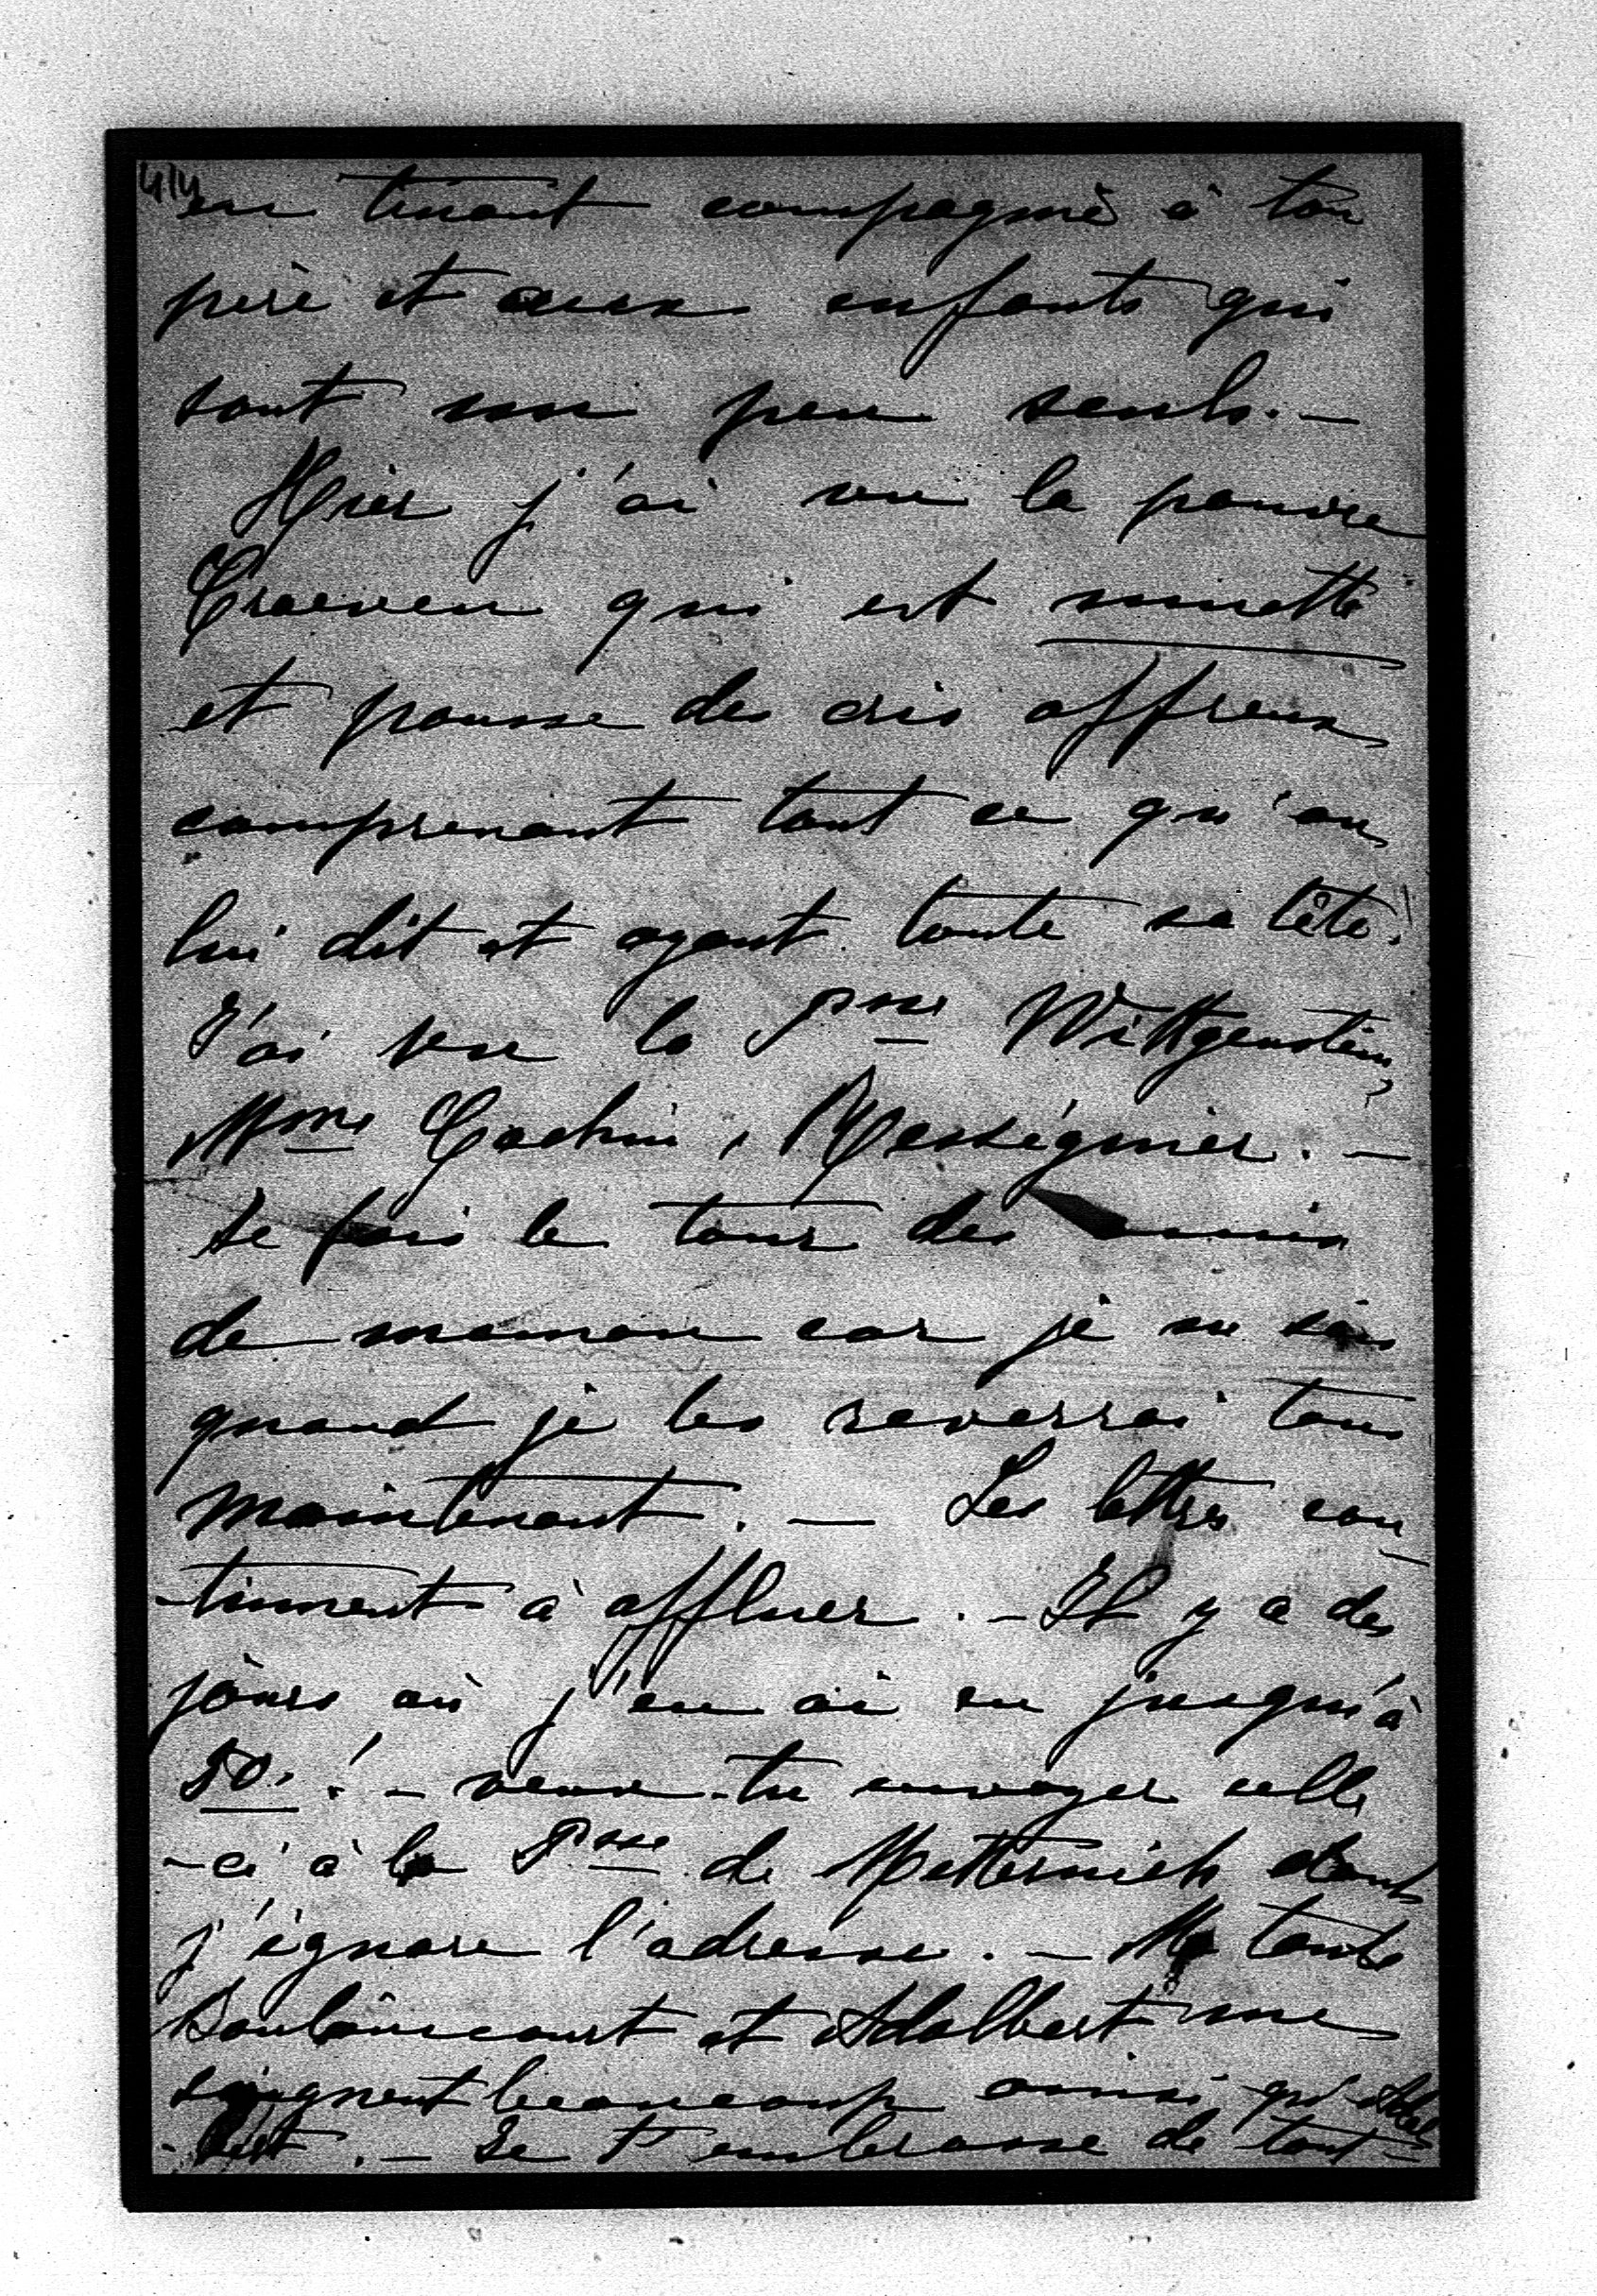 414
en tenant compagnie à ton
père et aux enfants qui
sont un peu seuls. —
Hier j'ai vu la pauvre
Craeven qui est muette
et pousse des cris affreux
comprenant tout ce qu'on
lui dit et ayant toute sa tête!
J'ai vu la Psse Wittgenstein,
Mme Cochin, Rességuier. —
Je fais le tour des amis
de maman car je ne sais
quand je les reverrai tous
maintenant. — Les lettres con-
-tinuent à affluer. — Il y a des
jours où j'en ai eu jusqu'à
50! — veux-tu envoyer celle
-ci à la Psse de Metternich dont
j'ignore l'adresse. — Ma tante
et Adalbert me
soignent beaucoup ainsi qu'
. — Je t'embrasse de tout